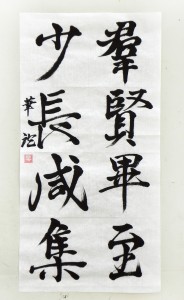 羣賢畢至
少長咸集
華